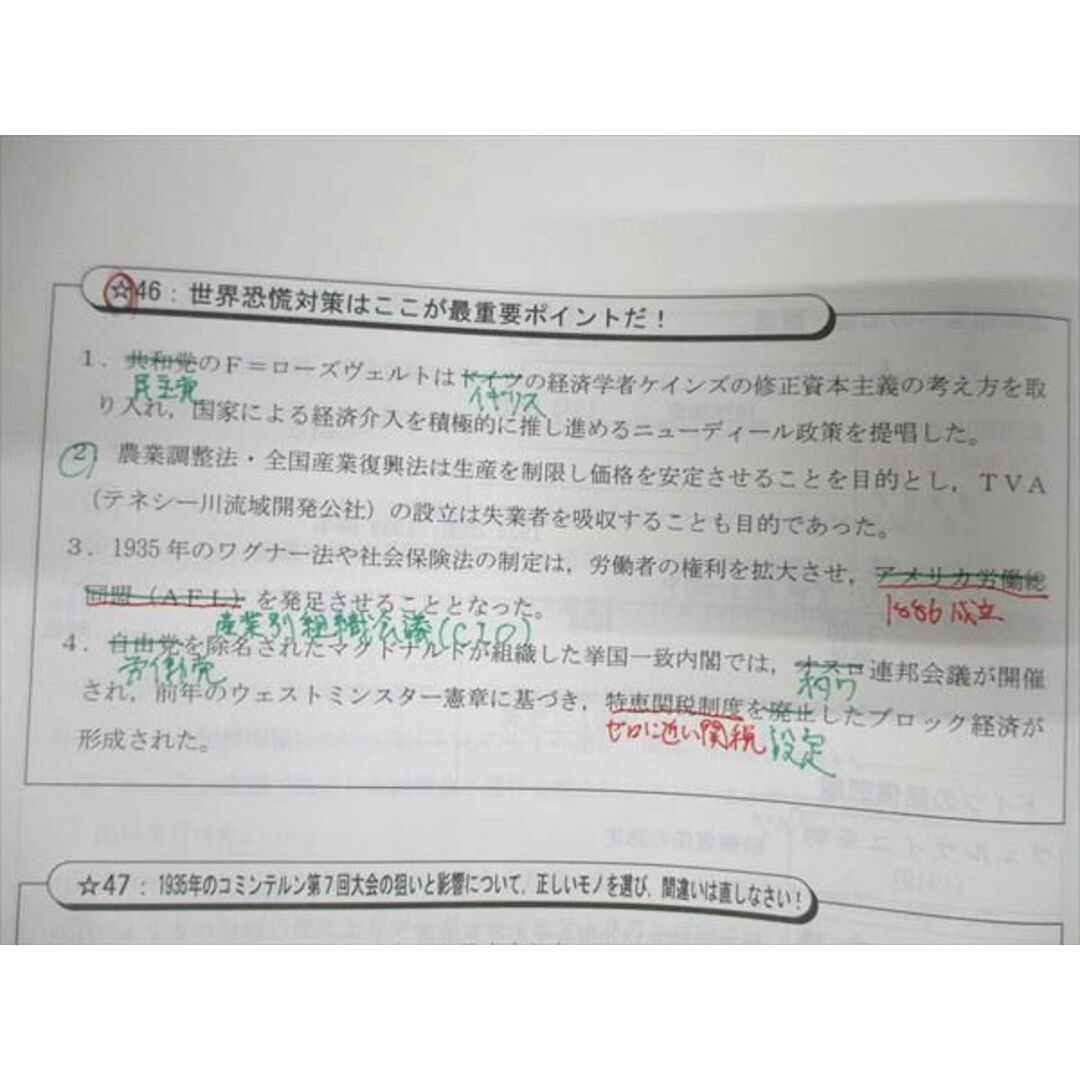 ☆46：世界恐慌対策はここが最重要ポイントだ！
1．共和党のF＝ローズヴェルトはドイツの経済学者ケインズの修正資本主義の考え方を取
民主党 イギリス
り入れ，国家による経済介入を積極的に推し進めるニューディール政策を提唱した。
2 農業調整法・全国産業復興法は生産を制限し価格を安定させることを目的とし，TVA
（テネシー川流域開発公社）の設立は失業者を吸収することも目的であった。
3．1935年のワグナー法や社会保険法の制定は，労働者の権利を拡大させ，アメリカ労働総
同盟（AFL）を発足させることとなった。 1886成立
産業別組織会議(CIO)
4．自由党を除名されたマクドナルドが組織した挙国一致内閣では，オスロ連邦会議が開催
労働党 オタワ
され，前年のウェストミンスター憲章に基づき，特恵関税制度を廃止したブロック経済が
ゼロに近い関税 設定
形成された。
☆47：1935年のコミンテルン第7回大会の狙いと影響について，正しいモノを選び，間違いは直しなさい！